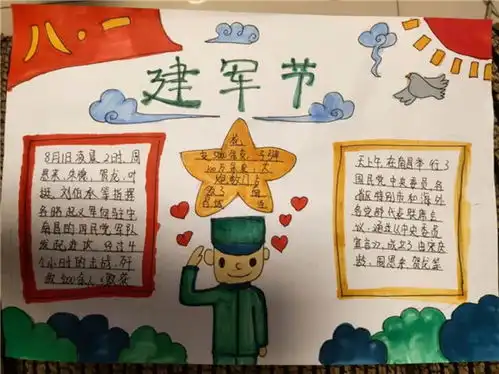 八·一
建军节
8月1日凌晨2时,周
恩来、贺龙、叶
挺、刘伯承等指挥
各路起义军向驻守
南昌的国民党军队
发起进攻 经过4
个小时的击战,歼
敌
花
支 5000余支,子弹
70万余发,大
炮数门
天上午 在南昌举行了
国民党中央委员各
省区特别市和海外
各党部代表联席会
议,通过从中央委员
宣言》,成立了由宋庆
龄、周恩来 贺龙等